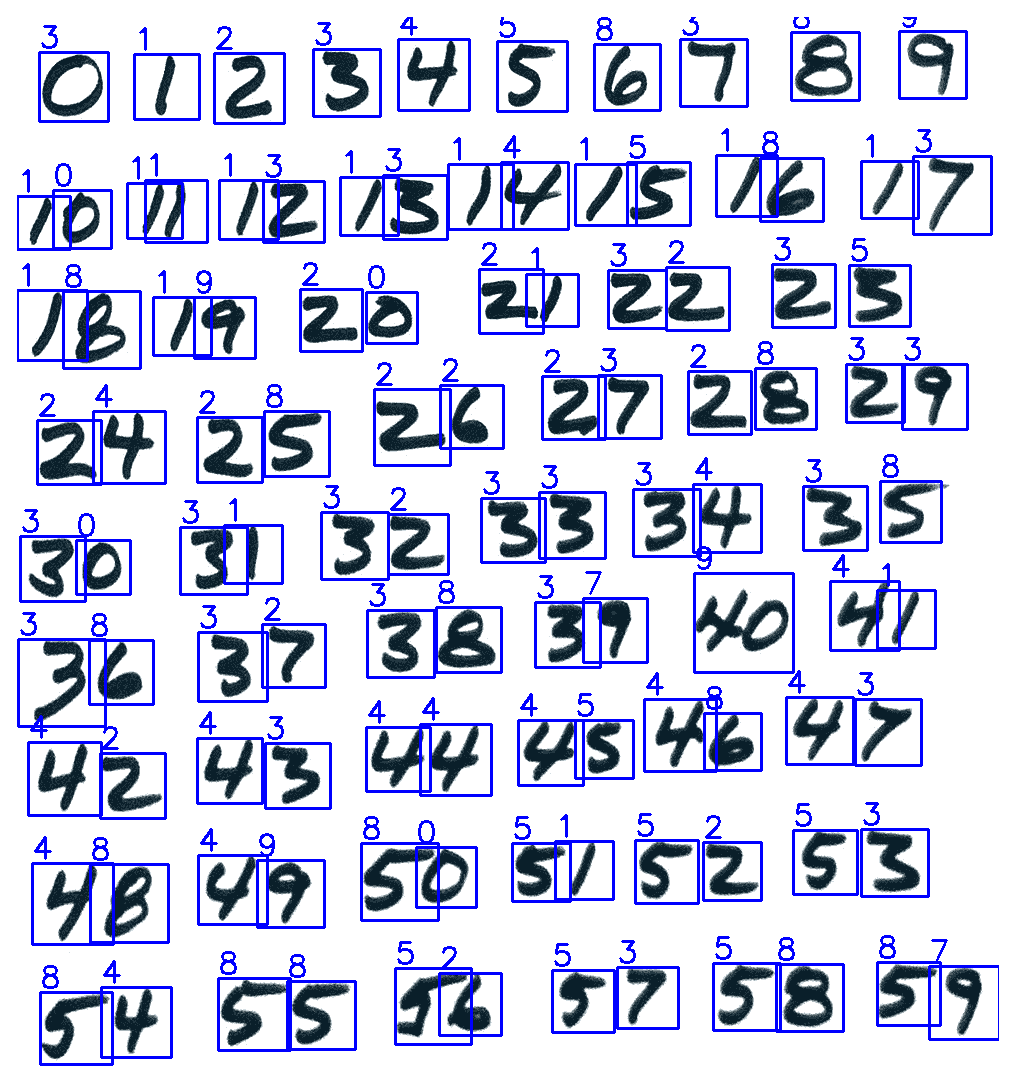 3 1 2 3 4 5 8 3 8 9
0 1 2 3 4 5 6 7 8 9
1 0 1 1 1 3 1 3 1 4 1 5 1 8 1 3
10 11 12 13 14 15 16 17
1 8 1 9 2 0 2 1 3 2 3 5
18 19 20 21 22 23
2 4 2 8 2 2 2 3 2 8 3 3
24 25 26 27 28 29
3 0 3 1 3 2 3 3 3 4 3 8
30 31 32 33 34 35
3 8 3 2 3 8 3 7 9 4 1
36 37 38 39 40 41
4 2 4 3 4 4 4 5 4 8 4 3
42 43 44 45 46 47
4 8 4 9 8 0 5 1 5 2 5 3
48 49 50 51 52 53
8 4 8 8 5 2 5 3 5 8 8 7
54 55 56 57 58 59